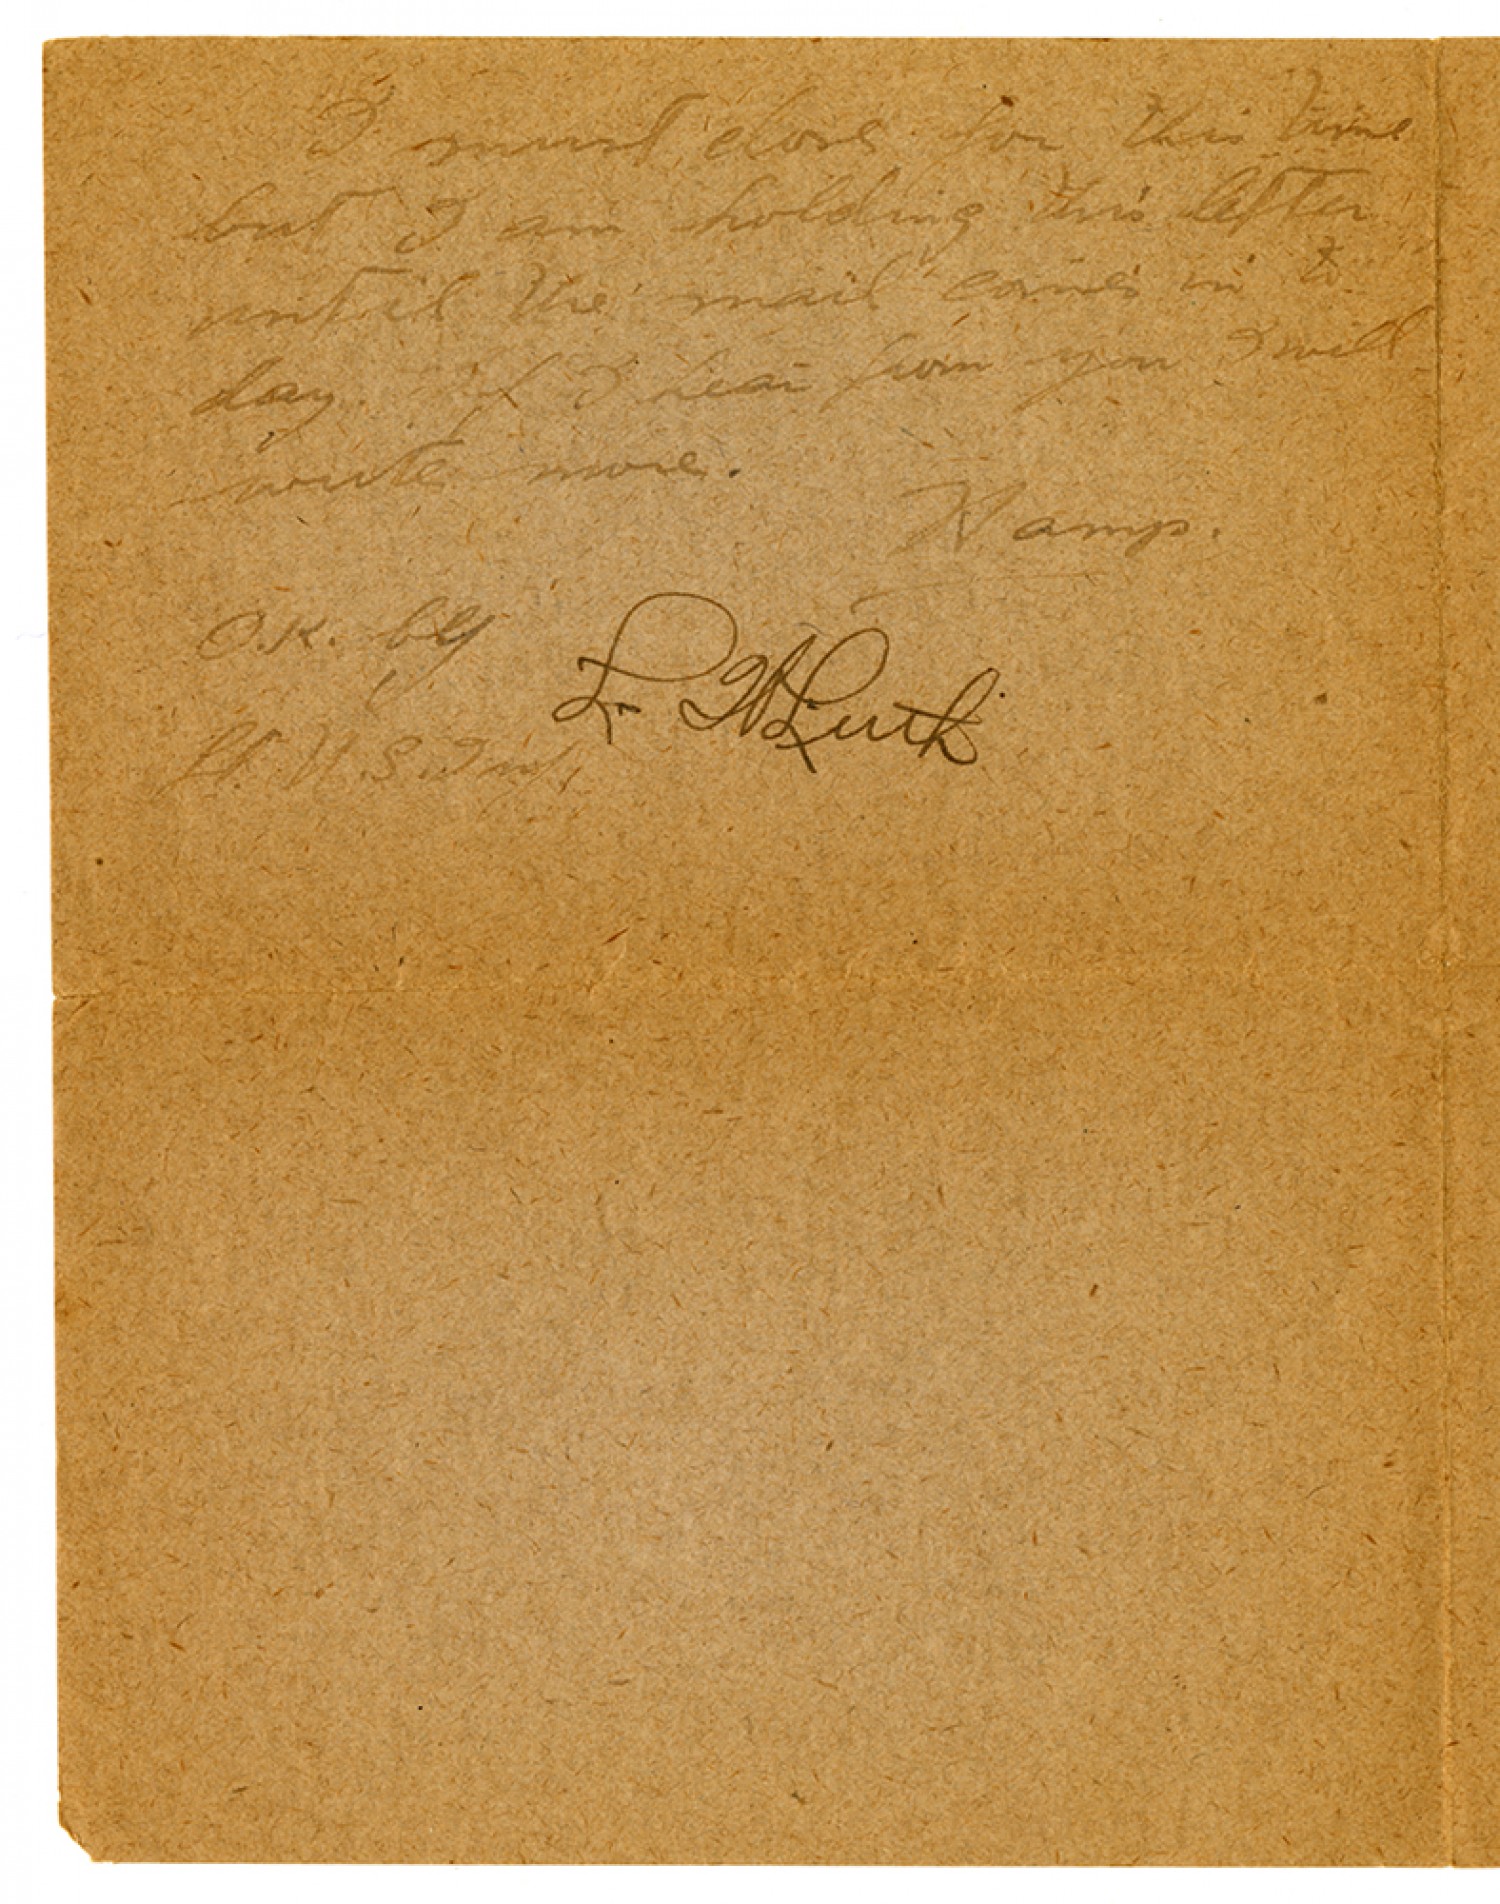 I must close for this time
but I am holding this letter
until the mail comes in to
day. If I hear from you I will
write more.
Hamp.
O.K. by